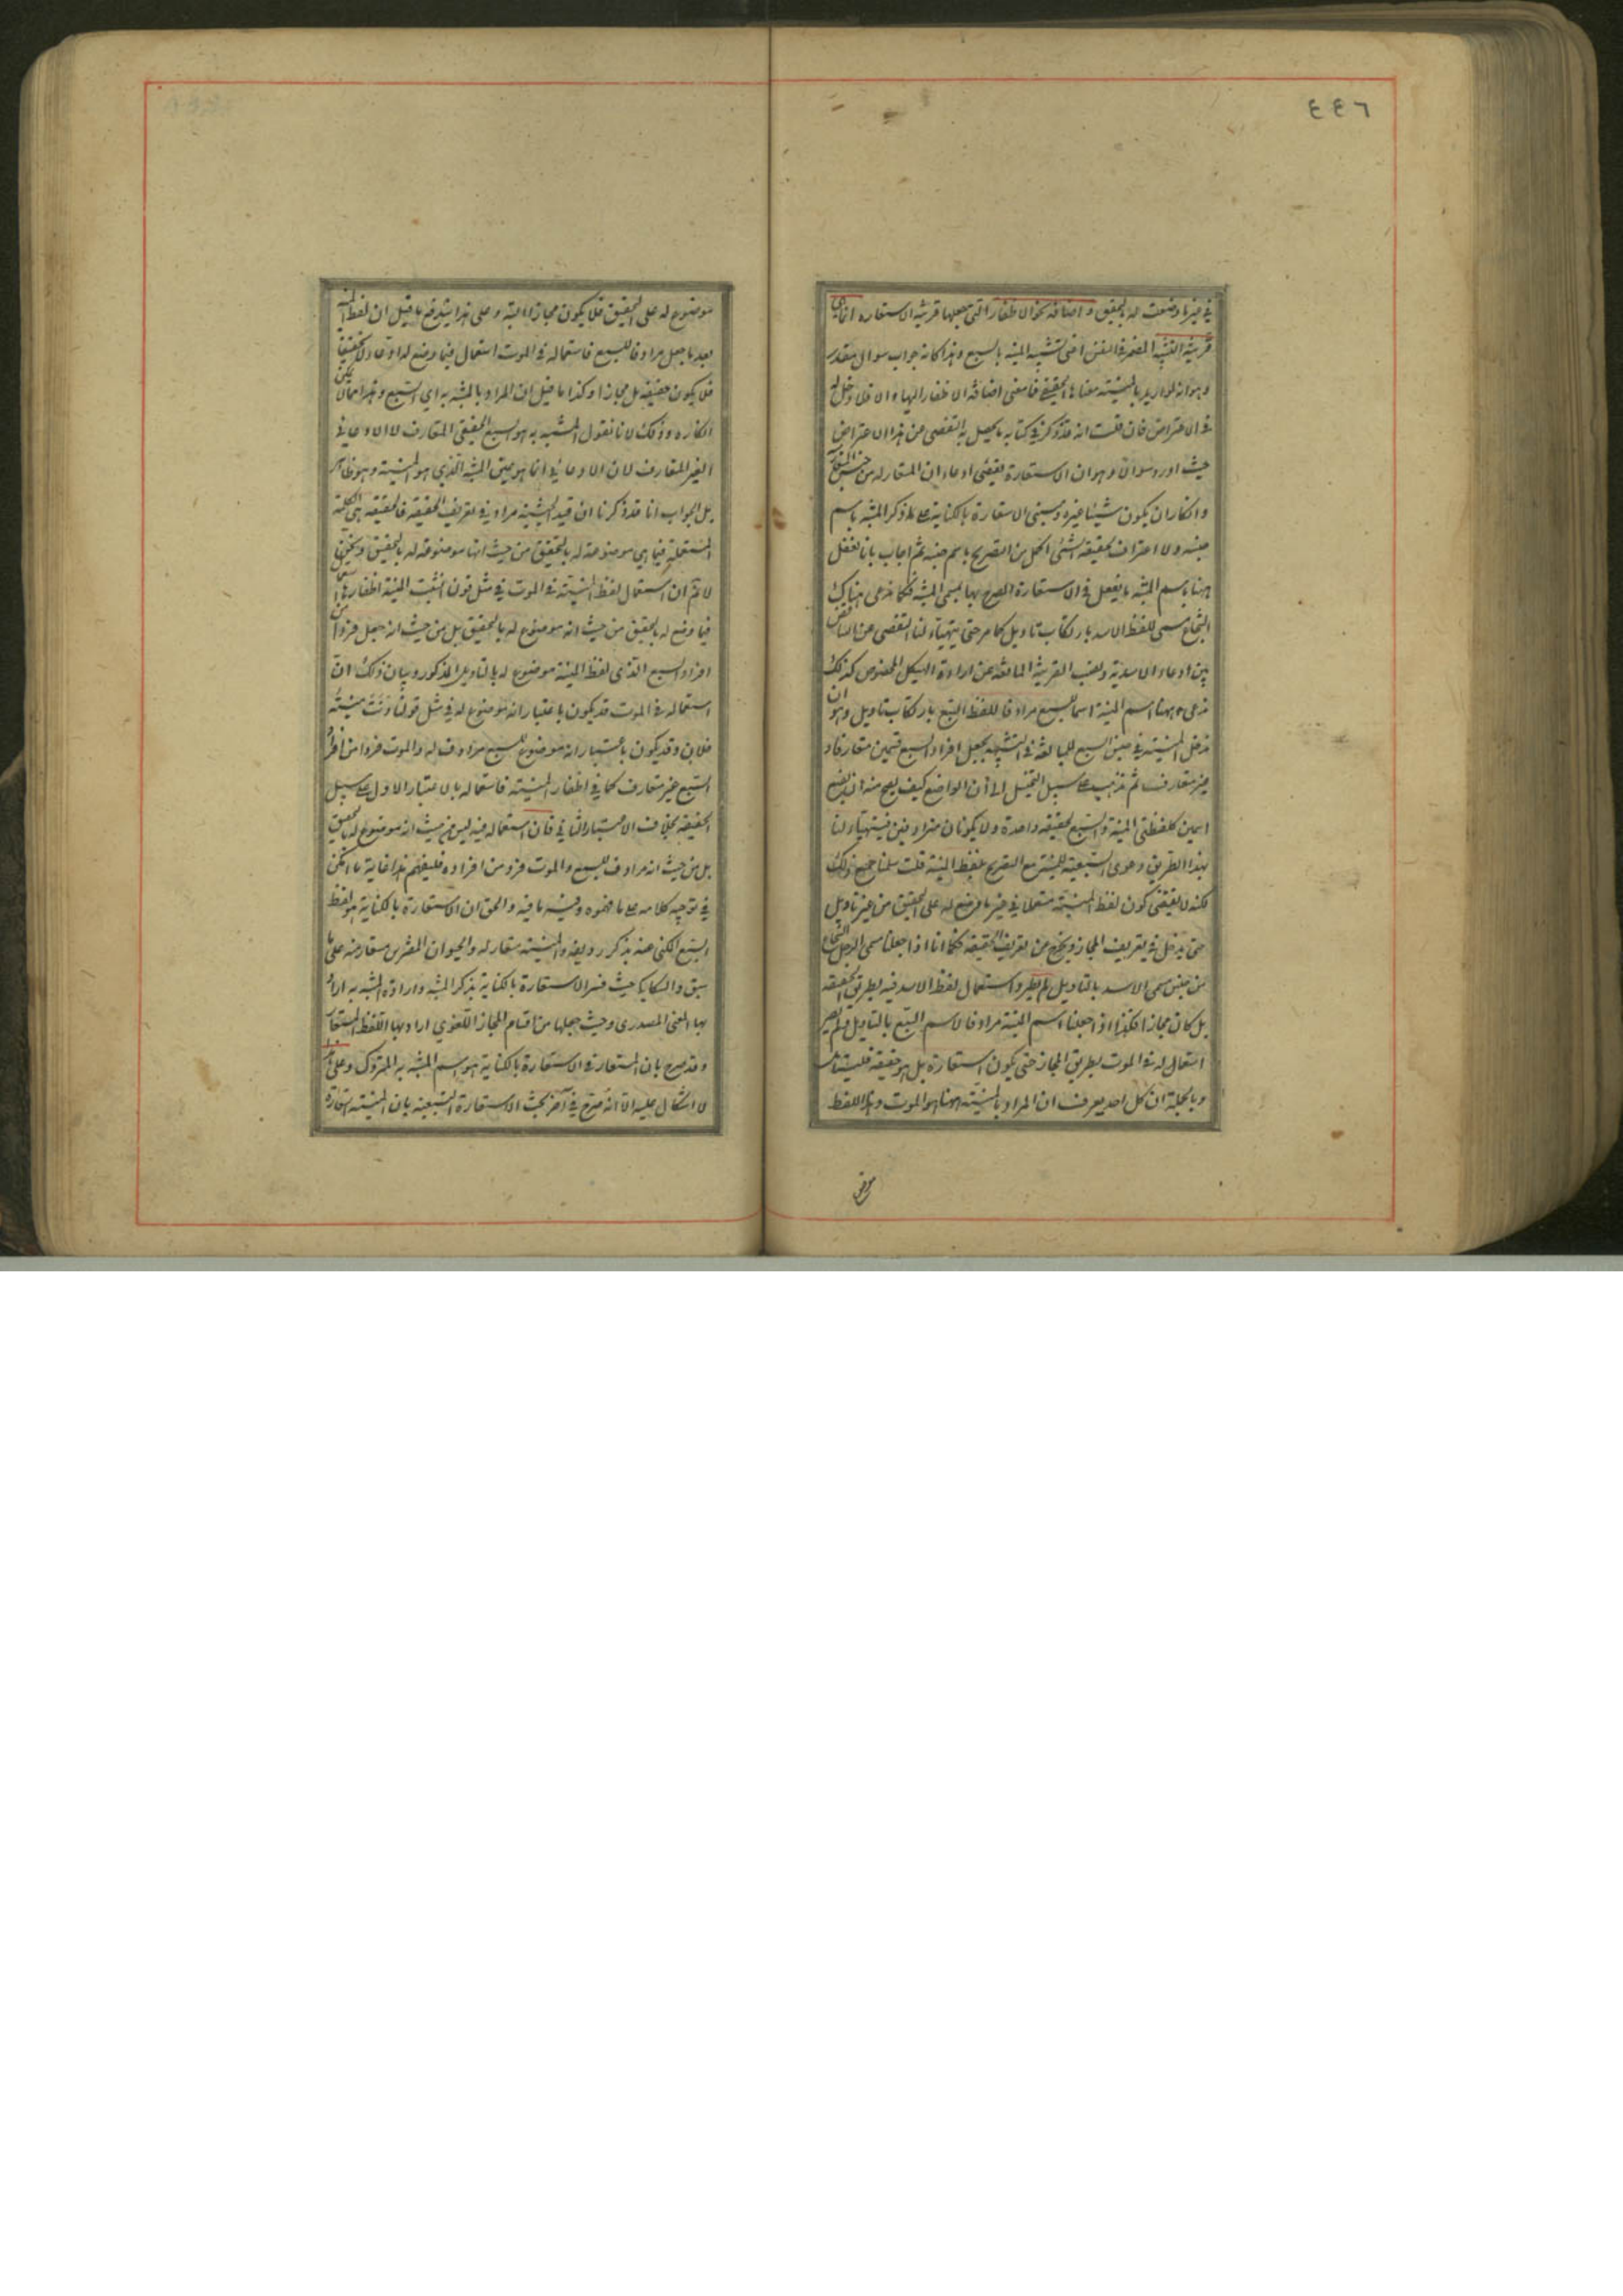 ٤٤٦
في غير ما وضعت له بالتحقيق واضافة نحو الاظفار التي تجعلها قرينة الاستعارة انما هي
قرينة التشبيه المضمر في النفس اعني تشبيه المنية بالسبع وهذا كانه جواب سوال مقدر
وهو انه لو اريد بالمنية معناها الحقيقي فما معنى اضافة الاظفار اليها والا فلا دخل له
في الاعتراض فان قلت انه قد ذكر في كتابه ما يحصل به التفصي عن هذا الاعتراض
حيث اورد سوالا وهو ان الاستعارة تقتضي ادعاء ان المستعار له من جنس المستعار منه
وانكار ان يكون شيئا غيره ومبنى الاستعارة بالكناية على ذكر المشبه باسم
جنسه ولا اعتراف بحقيقة الشئ اكمل من التصريح باسم جنسه ثم اجاب بانا نفعل
ههنا باسم المشبه ما نفعل في الاستعارة المصرح بها بمسمى المشبه فكما ندعى هناك
الشجاع مسمى للفظ الاسد بارتكاب تاويل كما مر حتى يتهيأ لنا التفصي عن التناقض
بين ادعاء الاسدية ونصب القرينة المانعة عن ارادة الهيكل المخصوص كذلك
ندعى ههنا اسم المنية اسما للسبع مرادفا للفظ السبع بارتكاب تاويل وهو ان
ندخل المنية في جنس السبع للمبالغة في التشبيه بجعل افراد السبع قسمين متعارفا و
غير متعارف ثم نذهب على سبيل التخييل الى أن الواضع كيف يصح منه ان يضع
اسمين كلفظتي المنية والسبع لحقيقة واحدة ولا يكونان مترادفين فيتهيأ لنا
بهذا الطريق دعوى السبعية للمنية مع التصريح بلفظ المنية قلت سلمنا جميع ذلك
لكنه لا يقتضي كون لفظ المنية مستعملا في غير ما وضع له على التحقيق من غير تاويل
حتى يدخل في تعريف المجاز ويخرج من تعريف الحقيقة فكما انا اذا جعلنا مسمى الرجل الشجاع
من جنس مسمى الاسد بالتاويل لم يصر استعمال لفظ الاسد فيه بطريق الحقيقة
بل كان مجازا فكذا اذا جعلنا اسم المنية مرادفا لاسم السبع بالتاويل لم يصر
استعماله في الموت بطريق المجاز حتى يكون استعارة بل هو حقيقة فليتامل
وبالجملة ان كل احد يعرف ان المراد بالمنية ههنا هو الموت وهذا اللفظ
موضوع
موضوع له على التحقيق فلا يكون مجازا البتة وعلى هذا يندفع ما قيل ان لفظ المنية
بعد ما جعل مرادفا للسبع فاستعماله في الموت استعمال فيما وضع له ادعاء لا تحقيقا
فلا يكون حقيقة بل مجازا وكذا ما قيل ان المراد بالمشبه به اي السبع وهذا مما لا يمكن
انكاره وذلك لانا نقول المشبه به هو السبع الحقيقي المتعارف لا الادعائي
الغير المتعارف لان الادعائي انما هو عين المشبه الذي هو المنية وهو ظاهر
بل الجواب انا قد ذكرنا ان قيد الحيثية مراد في تعريف الحقيقة فالحقيقة هي الكلمة
المستعملة فيما هي موضوعة له بالتحقيق من حيث انها موضوعة له بالتحقيق ونحن
لا نم ان استعمال لفظ المنية في الموت في مثل قولنا انشبت المنية اظفارها استعمال
فيما وضع له بالتحقيق من حيث انه موضوع له بالتحقيق بل من حيث انه جعل فردا من
افراد السبع الذي لفظ المنية موضوع له بالتاويل المذكور وبيان ذلك انّ
استعماله في الموت قد يكون باعتبار انه موضوع له في مثل قولنا دنت منية
فلان وقد يكون باعتبار انه موضوع للسبع مرادف له والموت فردا من افراد
السبع غير متعارف كما في اظفار المنية فاستعماله بالاعتبار الاول على سبيل
الحقيقة بخلاف الاعتبار الثاني فان استعماله فيه ليس من حيث انه موضوع له بالتحقيق
بل من حيث انه مرادف للسبع والموت فرد من افراده فليفهم هذا غاية ما امكن
في توجيه كلامه على ما فهموه وفيه ما فيه والحق ان الاستعارة بالكناية هو لفظ
السبع المكنى عنه بذكر رديفه والمنية مستعار له والحيوان المفترس مستعار منه على ما
سبق والسكاكي حيث فسر الاستعارة بالكناية بذكر المشبه وارادة المشبه به اراد
بها المعنى المصدري وحيث جعلها من اقسام المجاز اللغوي اراد بها اللفظ المستعار
وقد صرح بان المستعار في الاستعارة بالكناية هو اسم المشبه به المتروك وعلى هذا
لا اشكال عليه الا انه صرح في آخر بحث الاستعارة التبعية بان المنية استعارة